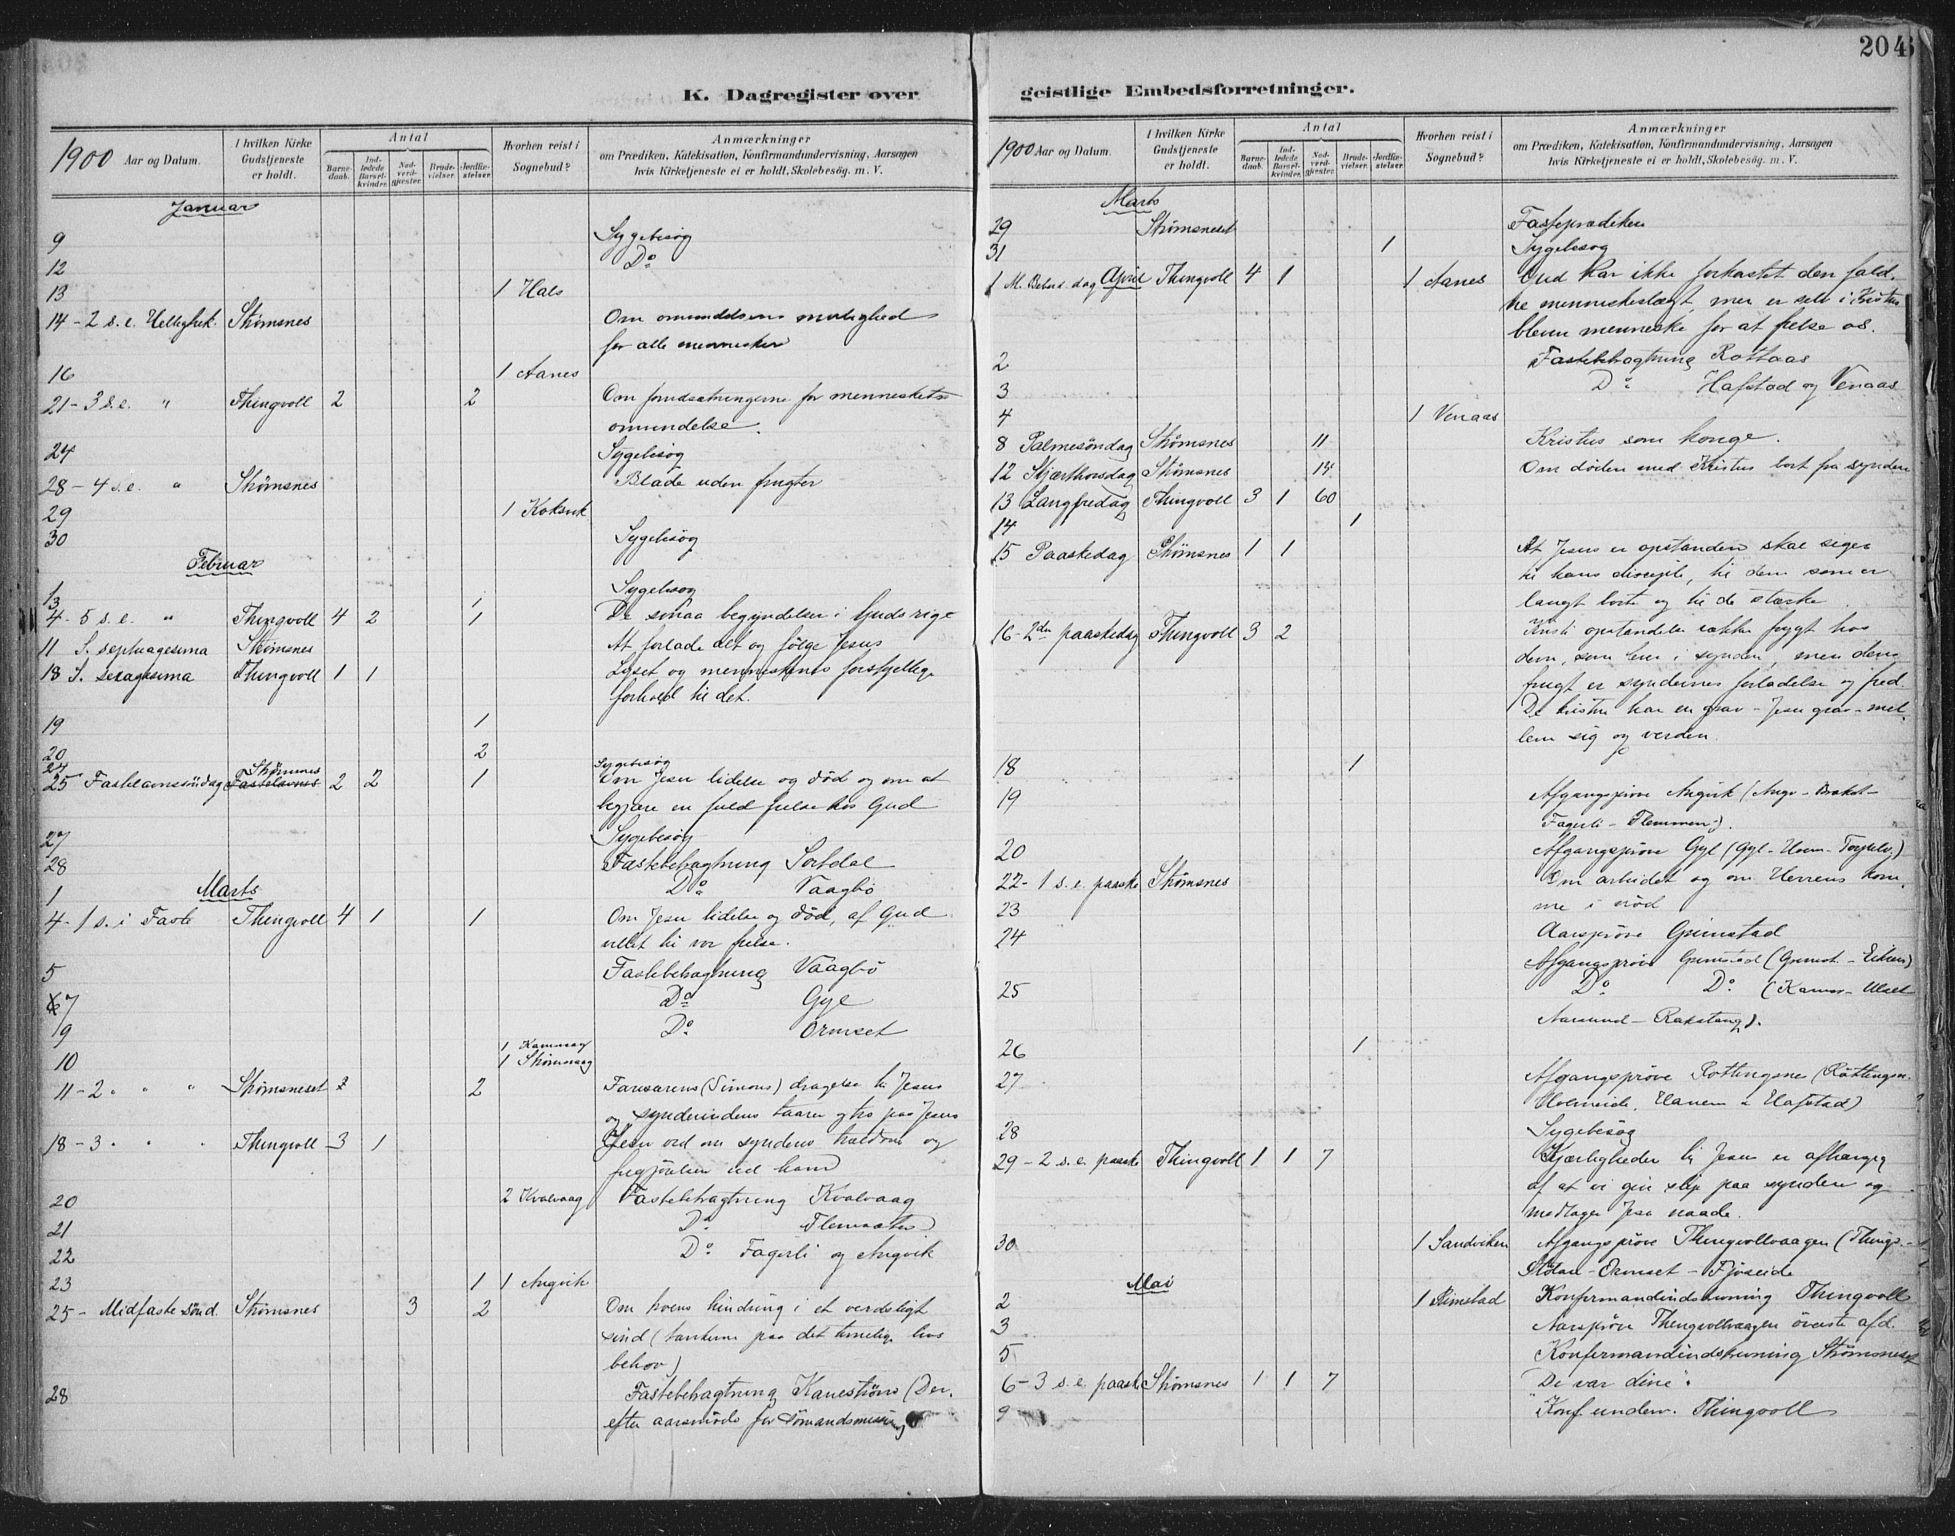 204
K. Dagregister over geistlige Embedsforretninger.
1900 Aar og Datum. I hvilken Kirke Gudstjeneste er holdt. Antal Barnedaab. Indledede Barselkvinder. Nadverdgjester. Brudevielser. Jordfæstelser. Hvorhen reist i Sognebud? Anmærkninger om Prædiken, Katekisation, Konfirmandundervisning, Aarsagen hvis Kirketjeneste ei er holdt, Skolebesøg m. V.
Januar
9 Sygebesøg
12 Do
13 1 Hals
14 - 2 s. e. Helligtrek. Strømsnes Om omvendelsens mulighed
for alle mennesker
16 1 Aanes
21 - 3 s. e. " Thingvoll 2 2 Om forudsætningerne for menneskets
omvendelse.
24 Sygebesøg
28 - 4 s. e. " Strømsnes Blade uden frugter
29 1 Koksvik
30 Sygebesøg
Februar
13 Sygebesøg
1
4 - 5 s. e. " Thingvoll 4 2 1 De smaa begyndelser i Guds rige
11 S. septuagesima Strømsnes At forlade alt og følge Jesus
18 S. sexagesima Thingvoll 1 1 Lyset og menneskenes forskjellige
forhold til det.
19 1
20 2
24 Strømsnes Sygebesøg
25 Fastelavnssöndag Fastelavns 2 2 1 Om Jesu lidelse og død og om at
begjære en fuld frelse hos Gud
27 Sygebesøg
28 Fastebetragtning Sortdal
Marts
1 Do Vaagbö
4 - 1 s. i Faste Thingvoll 4 1 1 Om Jesu lidelse og død, af Gud
villet til vor frelse.
5 Fastebetragtning Vaagbö
7 Do Gyl
9 Do Ormset
1 Kamsvaag
10 1 Strømsvaag
11 - 2 " " Strømsneset 2 Farisæerens (Simons) dragelse til Jesus
og synderindens taarer og tro paa Jesus
18 - 3 " " Thingvoll 3 1 Jesu ord om syndens trældom og
frigjörelsen ved ham
20 2 Kvalvaag Fastebetragtning Kvalvaag
21 Do
22 Do Fagerli og Angvik
23 1 1 Angvik
25 - Midfaste sönd. Strømsnes 3 2 Om troens hindring i et verdsligt
sind (tankerne paa det timelige livs
behov)
28 Fastebetragtning Kanestrøm (Der-
efter aarsmöde for Sömandsmission)
1900 Aar og Datum. I hvilken Kirke Gudstjeneste er holdt. Antal Barnedaab. Indledede Barselkvinder. Nadverdgjester. Brudevielser. Jordfæstelser. Hvorhen reist i Sognebud? Anmærkninger om Prædiken, Katekisation, Konfirmandundervisning, Aarsagen hvis Kirketjeneste ei er holdt, Skolebesøg m. V.
Marts
29 Strømsneset Fasteprædiken
31 1 Sygebesøg
1 M. Bebud. dag April Thingvoll 4 1 1 Aanes Gud har ikke forkastet den fald-
ne menneskeslægt, men er selv i Kristus
bleven menneske for at frelse os.
2 Fastebetragtning Rottaas
3 Do Hafstad og Venaas
4 1 Venaas
8 Palmesöndag Strømsnes 11 Kristus som konge.
12 Skjærthorsdag Strømsnes 14 Om döden med Kristus bort fra synden
13 Langfredag Thingvoll 3 1 60
14 1
15 Paaskedag Strømsnes 1 1 At Jesus er opstanden skal siges
til hans disciple, til dem som er
langt borte og til de stærke
16 - 2den paaskedag Thingvoll 3 2 Kristi opstandelse vækker frygt hos
dem, som lever i synden, men dens
frugt er syndernes forladelse og fred.
De kristne har en grav - Jesu grav - mel-
lem sig og verden.
18 1
19 Afgangspröve Angvik (Angv - Brakst-
Fagerli - Flemmen).
20 Afgangspröve Gyl (Gyl - Hvem - Torjulv.)
22 - 1 s. e. paaske Strømsnes Om arbeidet og om Herrens kom-
23 me i nöd
24 Aarspröve Grimstad
Afgangspröve Grimstad
25 Do Do
Aarsund - Rakstang).
26 1
27 Afgangspröve Rottingsne (Röttingsn.
Holmeide, Hanem & Hafstad)
28 Sygebesög
29 - 2 s. e. paaske Thingvoll 1 1 7 Kjærligheden til Jesus er afhængig
af at vi giver slip paa synden og
modtager Jesu naade.
30 1 Sandviken Afgangspröve Thingvollvaagen (Things-
Ormset - Fjöseide
Mai
2 1 Rimstad Konfirmandundervisning Thingvoll
3 Aarspröve Thingvollvaagen överste afd.
5 Konfirmandundervisning Strømsneset
6 - 3 s. e. paaske Strømsnes 1 1 7 "De var dine".
9 Konf. underv. Thingvoll